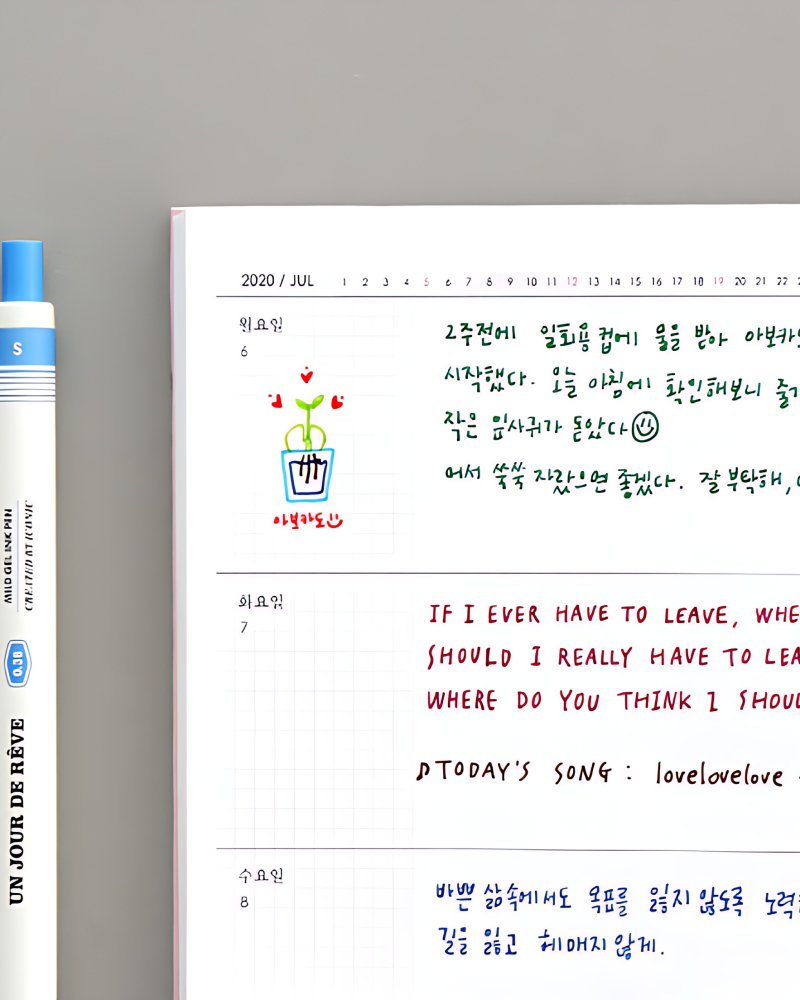 S
MILD GEL INK PEN
CREATED BY ICONIC
0.38
UN JOUR DE RÊVE
2020 / JUL 1 2 3 4 5 6 7 8 9 10 11 12 13 14 15 16 17 18 19 20 21 22
월요일
6
2주전에 일회용컵에 물을 받아 아보카
시작했다. 오늘 아침에 확인해보니 줄기
작은 잎사귀가 돋았다
어서 쑥쑥 자랐으면 좋겠다. 잘 부탁해,
아보카도
화요일
7
IF I EVER HAVE TO LEAVE, WHE
SHOULD I REALLY HAVE TO LEA
WHERE DO YOU THINK I SHOUL
♪TODAY'S SONG : lovelovelove
수요일
8
바쁜 삶속에서도 목표를 잃지 않도록 노력
길을 잃고 헤매지 않게.